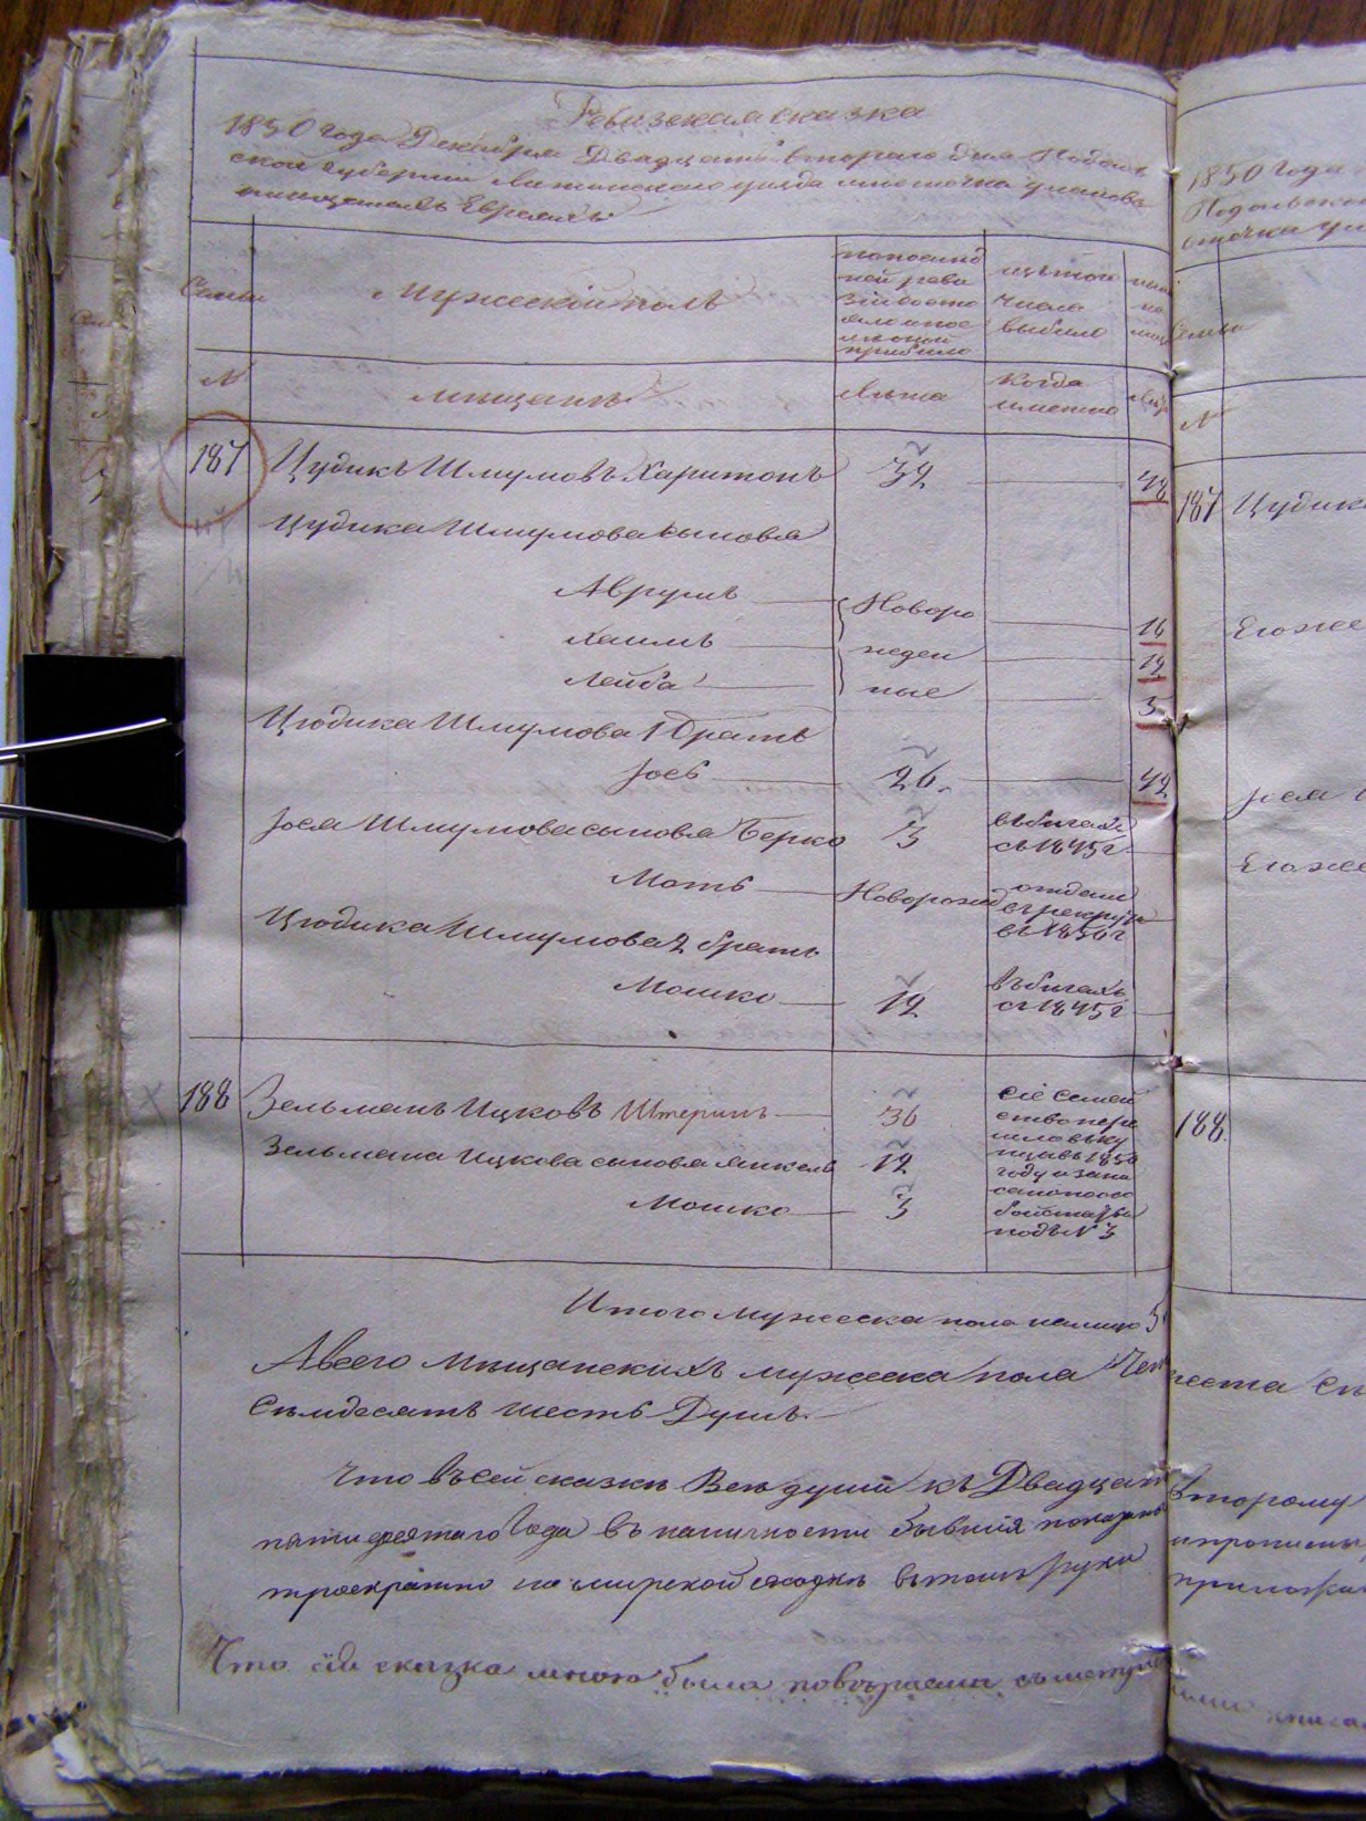 Ревизская сказка
1850 года Декабря Двадцать втораго дня Подоль
ской губернии Литинскаго уезда местечка Уланова
мещанахъ Евреяхъ
Семьи
Мужескій полъ
по послед
ней реви
зіи состо
яло и пос
ле оной
прибыло
изъ того
числа
выбыло
ныне
на
лицо
№
мещанъ
Лета
когда
именно
Лета
187 Цудикъ Шмумовъ Харитонъ 32 48
Цудика Шмумова сыновья
Аврумъ Новоро 16
Хаимъ жден 12
Лейба ные 5
Цюдика Шмумова 1 братъ
Іось 26 42
Іося Шмумова сыновья Берко 3 въ бегахъ
съ 1845 г
Моть Новорожд отданъ
въ рекруты
въ 1850 г
Цюдика Шмумова 2 братъ
Мошко 12 въ бегахъ
съ 1845 г
188 Зельманъ Ицковъ Штеринъ 36 сіе семей
ство пере
шло въ ку
пцы въ 1850
году и запи
сано по осо
бой
подъ № 3
Зельмана Ицкова сыновья Янкель 12
Мошко 3
Итого мужеска пола налицо 5
А всего мещанскихъ мужеска пола
Семдесятъ шесть Душъ.
Что въ сей сказке Все души къ Двадцать
пятидесятаго Года въ наличности бывшия показаны
троекратно на мирской сходке въ томъ руки
Что сія сказка мною была поверяема съ метри
1850 года
Подольской
местечка
Семьи
№
187 Цудика
Его же
Іося
Его же
188
второму
и прописны
приложи
книга